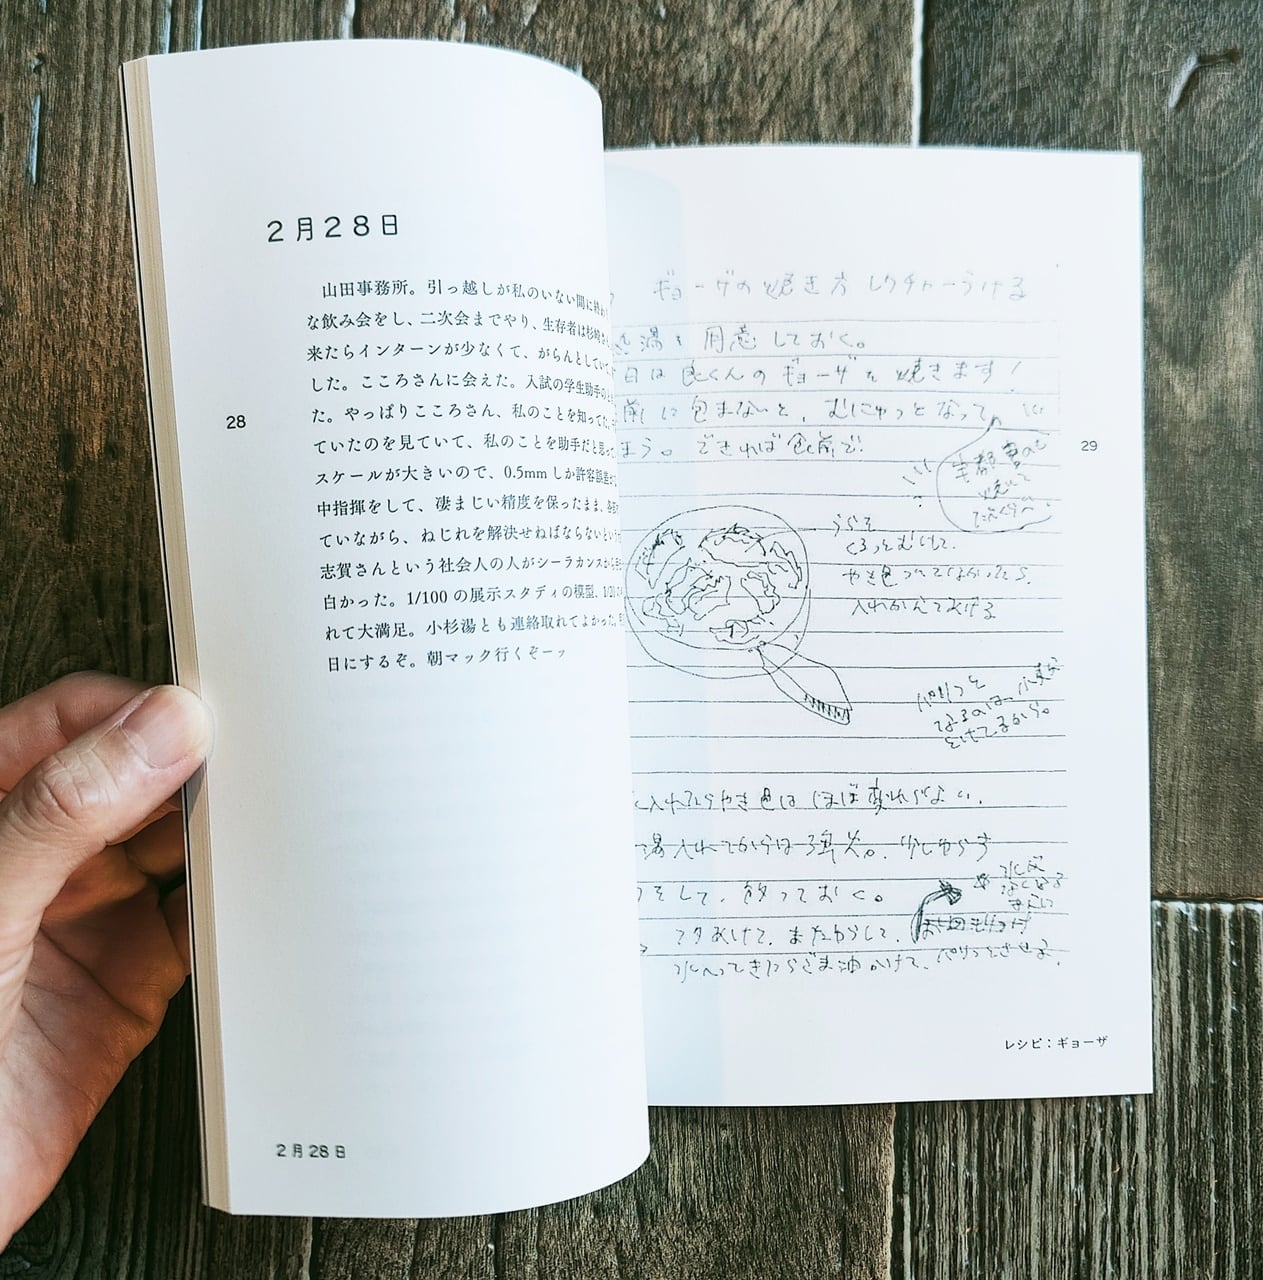 2月28日
山田事務所。引っ越しが私のいない間に終わ
な飲み会をし、二次会までやり、生存者は杉崎さん
来たらインターンが少なくて、がらんとしていて、
した。こころさんに会えた。入試の学生助手の
た。やっぱりこころさん、私のことを知ってた。
ていたのを見ていて、私のことを助手だと思って
スケールが大きいので、0.5mmしか許容誤差が
中指揮をして、凄まじい精度を保ったまま、
ていながら、ねじれを解決せねばならないという
志賀さんという社会人の人がシーラカンスから
白かった。1/100の展示スタディの模型、1/20
れて大満足。小杉湯とも連絡取れてよかった。
日にするぞ。朝マック行くぞーッ
28
2月28日
ギョーザの焼き方 レクチャーうける
湯を用意しておく。
日は良くんのギョーザを焼きます!
前に包まないと、むにゅっとなって
まう。できれば食前で
29
うらを
くるっとむして、
やき色ついてなかったら、
入れかえてあげる
パリっと
なるのは、小麦粉
とけてるから。
入れたらやき色はほぼ変わらない。
湯入れてからは強火。少しゆらす
をして、放っておく。
フタあけて、またゆらして、
水へってきたらごま油かけて、パリっとさせる。
レシピ:ギョーザ